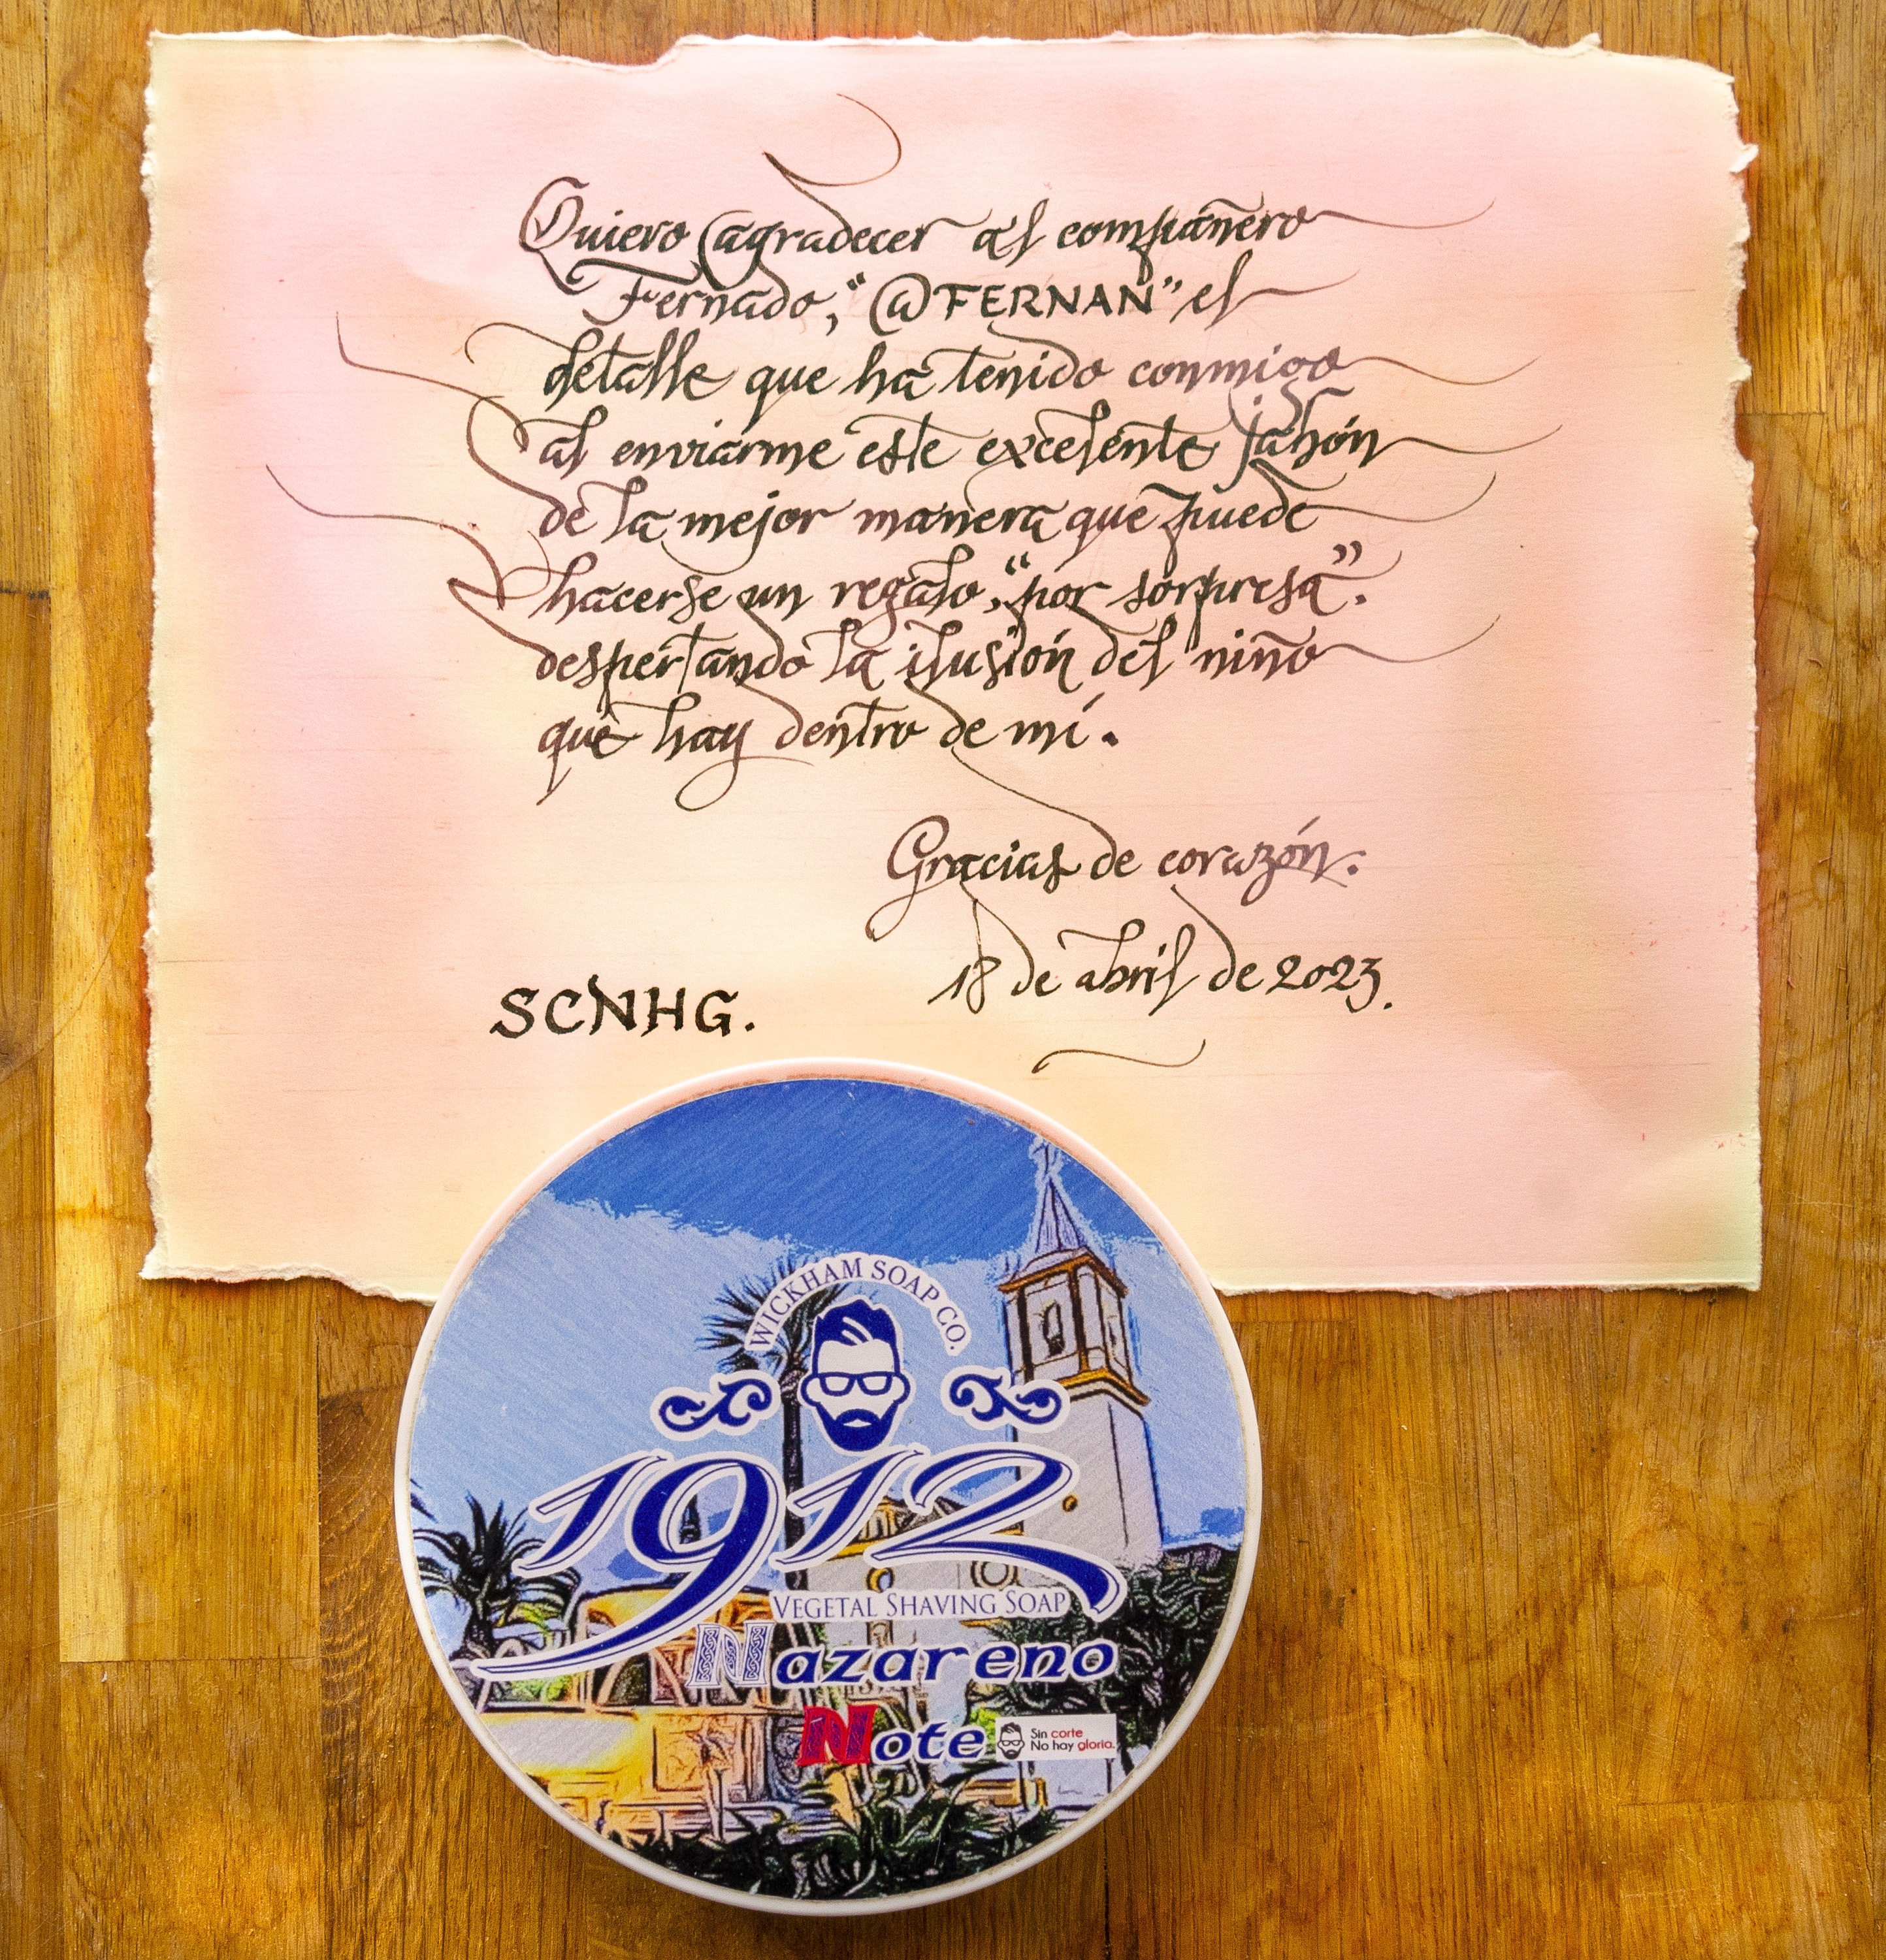 Quiero agradecer al compañero
Fernado, "@FERNAN" el
detalle que ha tenido conmigo
al enviarme este excelente jabón
de la mejor manera que puede
hacerse un regalo, "por sorpresa".
despertando la ilusión del niño
que hay dentro de mí.
Gracias de corazón.
18 de abril de 2023.
SCNHG.
WICKHAM SOAP CO.
1912
VEGETAL SHAVING SOAP
Nazareno
Note
Sin corte
No hay gloria.